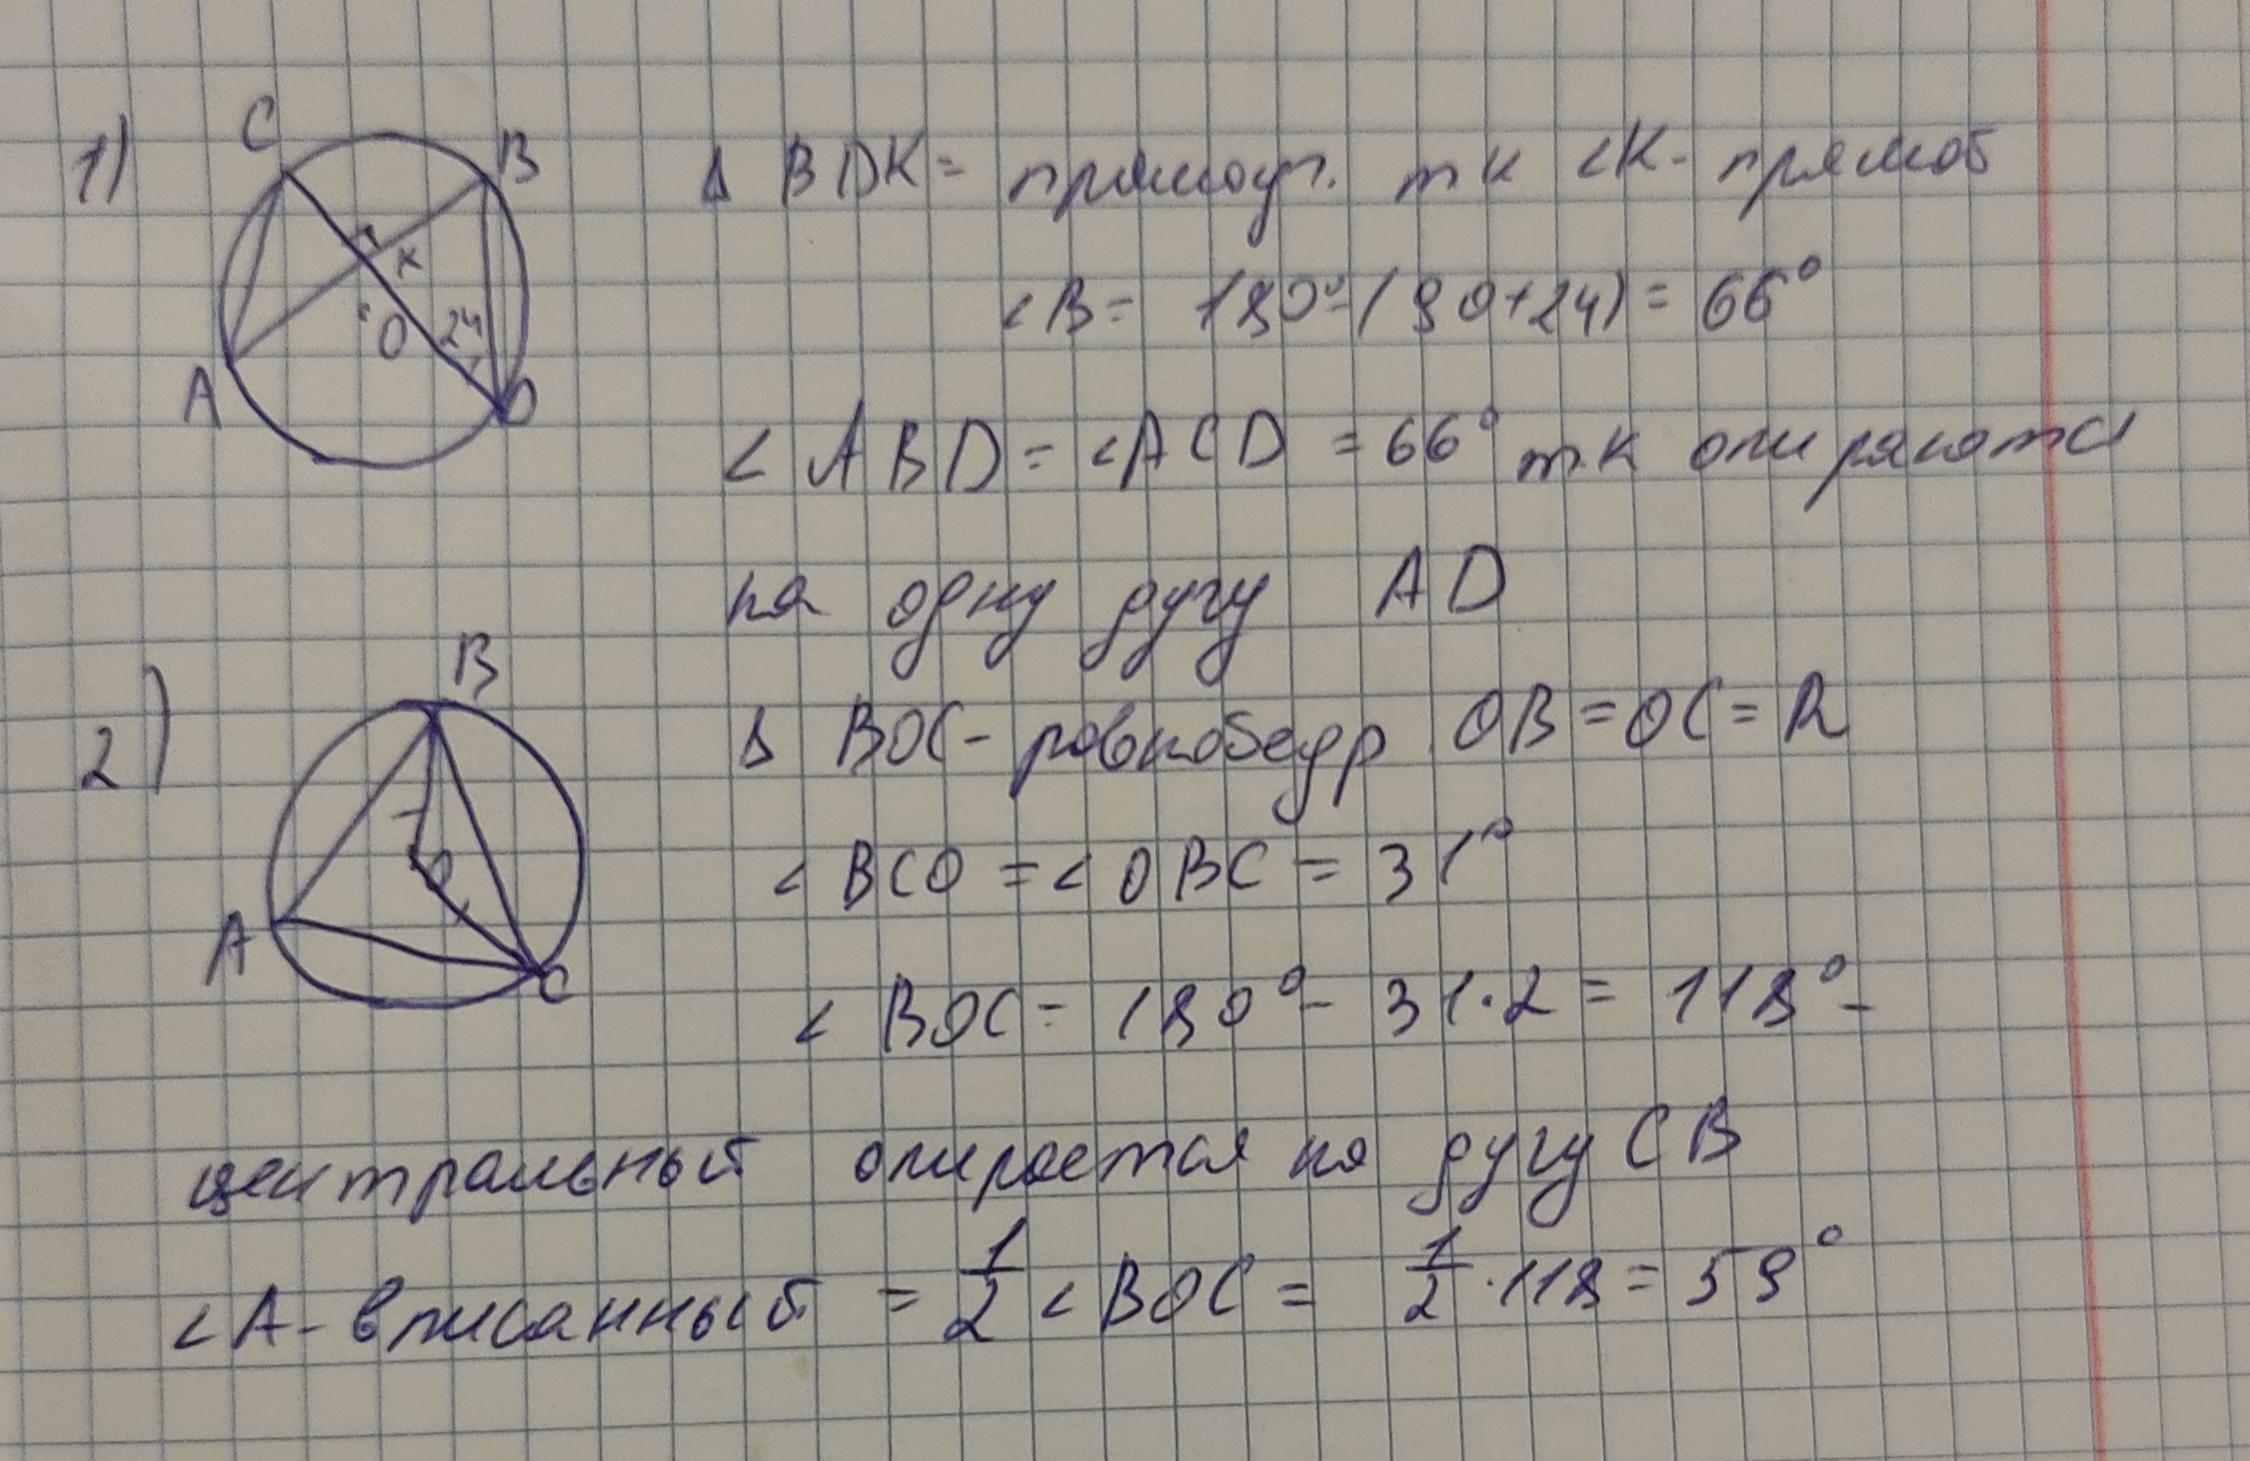 1)
C
B
x
O
24
A
D
Δ BDK = прямоуг. т к <K - прямой
<B = 180° - (90+24) = 66°
< ABD = <ACD = 66° т.к опираются
на одну дугу AD
2)
B
O
A
C
Δ BOC - равнобедр. OB = OC = R
< BCO = < OBC = 31°
< BOC = 180° - 31·2 = 118° -
центральный опирается на дугу CB
<A - вписанный = 1/2 < BOC = 1/2 · 118 = 59°